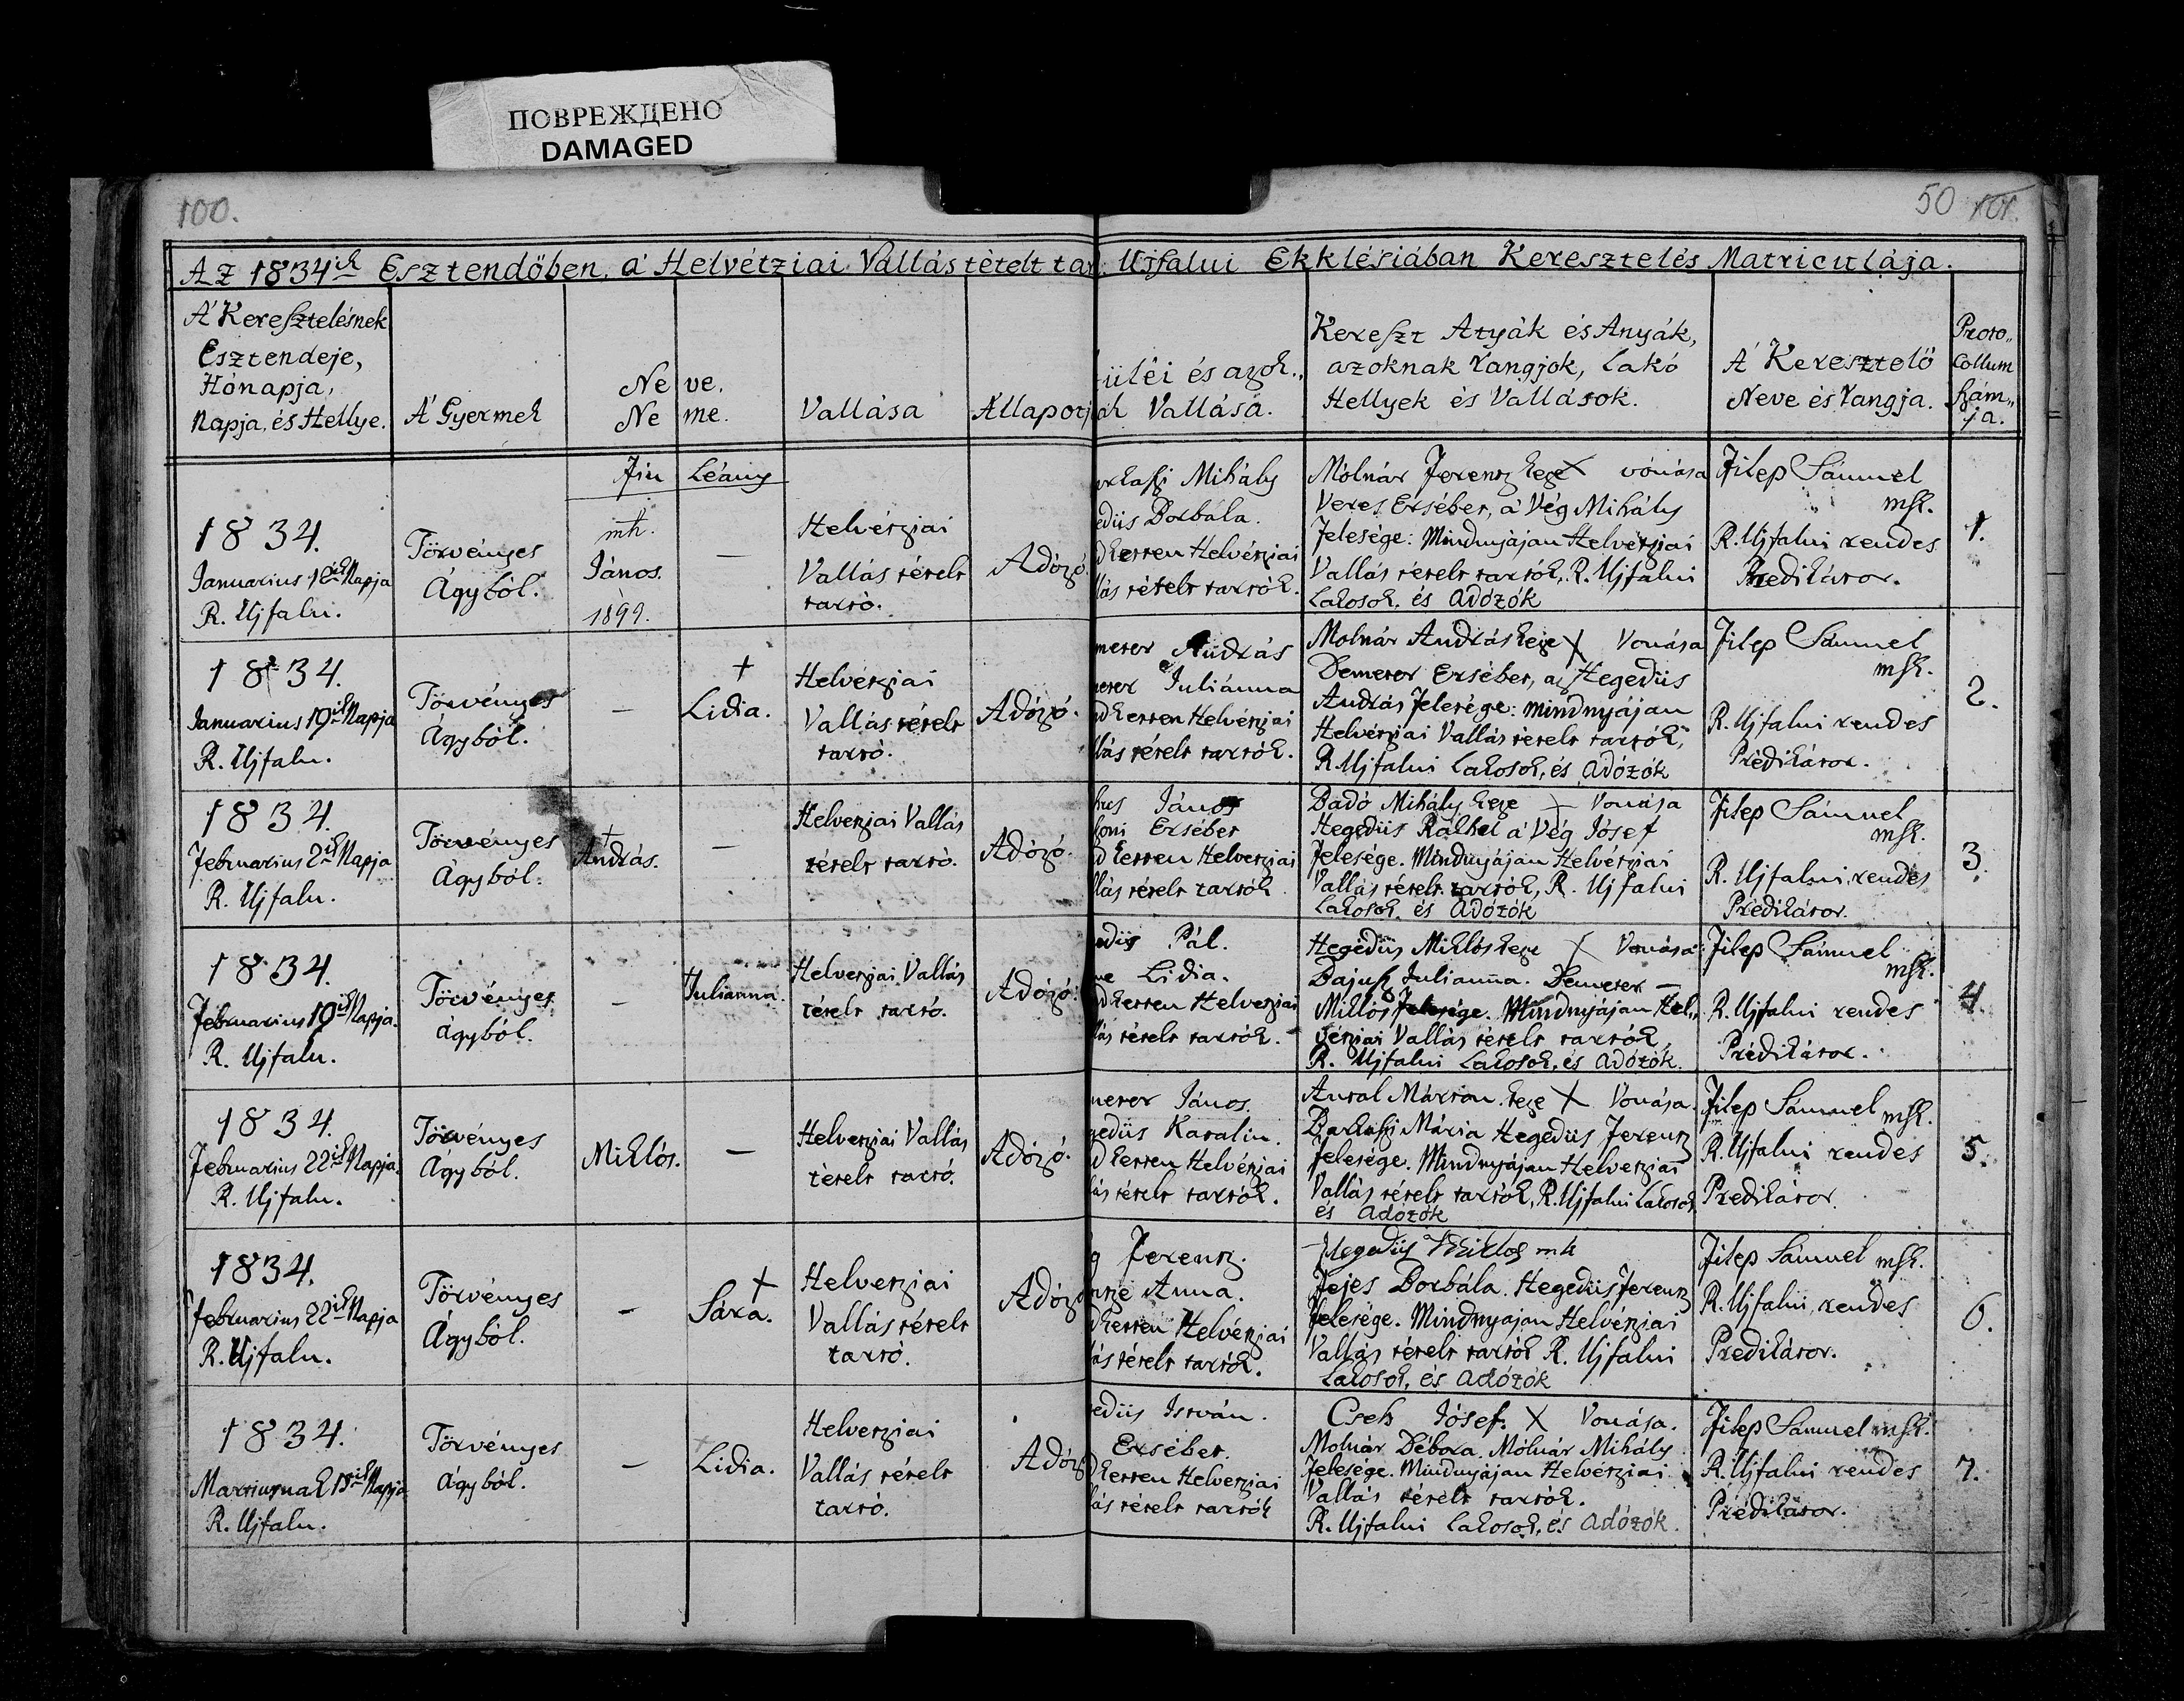 ПОВРЕЖДЕНО
DAMAGED
100.
50 101.
Az 1834ik Esztendőben, a' Helvétziai Vallástételt tar Ujfalui Ekklésiában Keresztelés Matriculája.
A' Keresztelésnek
Esztendeje,
Hónapja,
Napja, és Hellye.
A' Gyermek
Ne ve.
Ne me.
Vallása
Állapotj
ülei és azok„
ak Vallása.
Kereszt Atyák és Anyák,
azoknak rangjok, Lakó
Hellyek és Vallások.
A' Keresztelő
Neve és rangja.
Proto„
collum
szám„
ja.
Fiu Leány
1834.
Januarius 1 Napja
R. Ujfalu.
Törvényes
Ágyból.
mh.
János.
1899.
—
Helvétziai
Vallás tételt
tartó.
Adózó.
Mihály
edüs Borbala.
dketten Helvétziai
lás tételt tartók.
Molnár Ferentz keze X vonása
Veres Ersébet, a' Vég Mihály
Felesége: Mindnyájan Helvétziai
Vallás tételt tartók, R. Ujfalui
Lakosok, és Adózók
Filep Sámuel
msk.
R. Ujfalui rendes
Predikátor.
1.
1834.
Januarius 19ik Napja
R. Ujfalu.
Törvényes
Ágyból.
—
+
Lidia.
Helvétziai
Vallás tételt
tartó.
Adózó.
meter András
meter Juliánna
ndketten Helvétziai
llás tételt tartók.
Molnár András keze X Vonása
Demeter Ersébet, az Hegedüs
András Felesége: mindnyájan
Helvétziai Vallás tételt tartók,
R. Ujfalui Lakosok, és Adózók
Filep Sámuel
msk.
R. Ujfalui rendes
Prédikátor.
2.
1834.
Februarius 2ik Napja
R. Ujfalu.
Törvényes
Ágyból.
+
András.
—
Helvetziai Vallás
tételt tartó.
Adózó.
János
Ersébet
dketten Helvetziai
llás tételt tartók
Badó Mihály keze X Vonása
Hegedüs Ráhel a' Vég Jósef
Felesége. Mindnyájan Helvétziai
Vallás tételt tartók, R. Ujfalui
Lakosok, és Adózók
Filep Sámuel
msk.
R. Ujfalui rendes
Prédikátor.
3.
1834.
Februarius 19ik Napja.
R. Ujfalu.
Törvényes
Ágyból.
—
Julianna.
Helvetziai Vallás
tételt tartó.
Adózó.
edüs Pál.
Lidia.
dketten Helvetziai
lás tételt tartók.
Hegedüs Miklós keze X Vonása
Julianna. Demeter —
Miklós Felesége. Mindnyájan Hel„
vétziai Vallás tételt tartók,
R. Ujfalui Lakosok, és Adózók.
Filep Sámuel
msk.
R. Ujfalui rendes
Prédikátor.
4.
1834.
Februarius 22ik Napja.
R. Ujfalu.
Törvényes
Ágyból.
Miklós.
—
Helvetziai Vallás
tételt tartó.
Adózó.
meter János.
gedüs Katalin.
dketten Helvétziai
lás tételt tartók.
Antal Márton keze X Vonása.
Mária Hegedüs Ferentz
Felesége. Mindnyájan Helvetziai
Vallás tételt tartók, R. Ujfalui Lakosok
és Adózók
Filep Sámuel msk.
R. Ujfalui rendes
Predikátor.
5.
1834.
Februarius 22ik Napja
R. Ujfalu.
Törvényes
Ágyból.
—
+
Sára.
Helvetziai
Vallás tételt
tartó.
Adózó
g Ferentz.
Anna.
dketten Helvétziai
lás tételt tartók.
Hegedüs Miklos mk
Fejes Borbála. Hegedüs Ferentz
Felesége. Mindnyájan Helvétziai
Vallás tételt tartók R. Ujfalui
Lakosok, és Adózók
Filep Sámuel msk.
R. Ujfalui rendes
Predikátor.
6.
1834.
Martiusnak Napja
R. Ujfalu.
Törvényes
Ágyból.
—
+
Lidia.
Helvetziai
Vallás tételt
tartó.
Adóz
edüs István.
Ersébet.
dketten Helvetziai
lás tételt tartók
Cseh Jósef. X Vonása.
Molnár Débora. Mólnár Mihály
Felesége. Mindnyájan Helvétziai
Vallás tételt tartók.
R. Ujfalui Lakosok, és Adózók.
Filep Sámuel msk.
R. Ujfalui rendes
Prédikátor.
7.